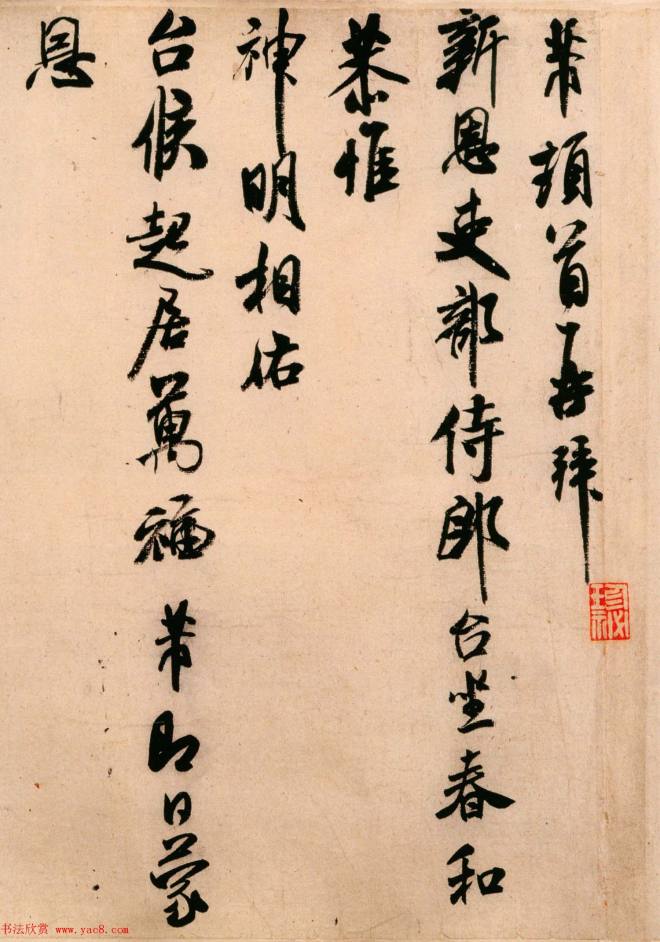 芾頓首再拜
新恩吏部侍郎台坐春和
恭惟
神明相佑
台候起居萬福芾即日蒙
恩
珍秘
书法欣赏 www.yac8.com